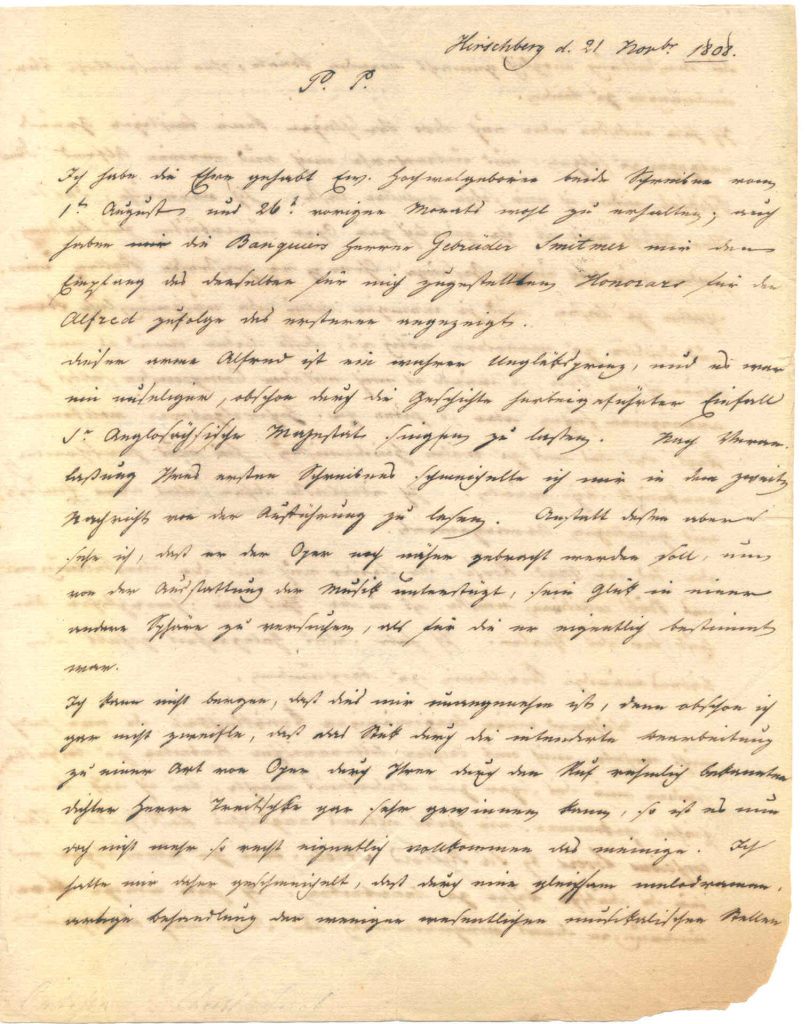 Hirschberg d. 21 Novbr 1808.
P. P.
Ich habe die Ehre gehabt Ew. Hochwolgeboren beide Schreiben vom
1t August und 26t. vorigen Monats wohl zu erhalten; auch
haben mir die Banquiers Herren Gebrüder Smitmer mir den
Empfang des denselben für mich zugestellten Honorars für den
Alfred zufolge des ersteren angezeigt.
Dieser arme Alfred ist ein wahrer Unglüksprinz, und es war
ein unseliger, obschon durch die Geschichte herbeigeführter Einfall
Sr Anglosächsische Majestät singen zu lassen. Nach Veran-
laßung Ihres ersten Schreibens schmeichelte ich mir in dem zweiten
Nachricht von der Aufführung zu lesen. Anstatt dessen aber
sehe ich, daß er der Oper noch näher gebracht werden soll, um
von der Ausstattung der Musik unterstüzt, sein Glük in einer
andern Sphäre zu versuchen, als für die er eigentlich bestimmt
war.
Ich kann nicht bergen, daß dies mir unangenehm ist, denn obschon ich
gar nicht zweifle, daß das Stük durch die intendirte Bearbeitung
zu einer Art von Oper durch Ihren durch den Ruf rühmlich bekannten
Dichter Herrn Treitschke gar sehr gewinnen kann, so ist es nun
doch nicht mehr so recht eigentlich vollkommen das meinige. Ich
hatte mir daher geschmeichelt, daß durch eine gleichsam melodramen-
artige Behandlung der weniger wesentlichen musikalischen Stellen